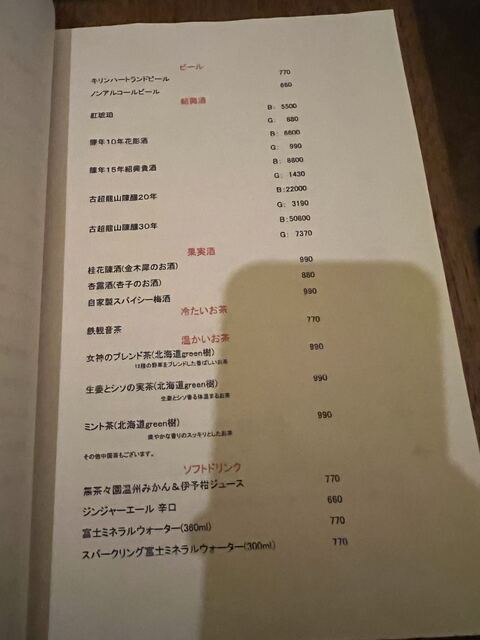 ビール
キリンハートランドビール 770
ノンアルコールビール 660
紹興酒
紅琥珀 B: 5500
G: 880
陳年10年花彫酒 B: 6600
G: 990
陳年15年紹興貴酒 B: 8800
G: 1430
古越龍山陳醸20年 B:22000
G: 3190
古越龍山陳醸30年 B:50600
G: 7370
果実酒
桂花陳酒(金木犀のお酒) 990
杏露酒(杏子のお酒) 880
自家製スパイシー梅酒 990
冷たいお茶
鉄観音茶 770
温かいお茶
女神のブレンド茶(北海道green樹) 990
12種の野草をブレンドした香ばしいお茶
生姜とシソの実茶(北海道green樹) 990
生姜とシソ香る体温まるお茶
ミント茶(北海道green樹) 990
爽やかな香りのスッキリとしたお茶
その他中国茶もございます。
ソフトドリンク
無茶々園温州みかん&伊予柑ジュース 770
ジンジャーエール 辛口 660
富士ミネラルウォーター(360ml) 770
スパークリング富士ミネラルウォーター(300ml) 770